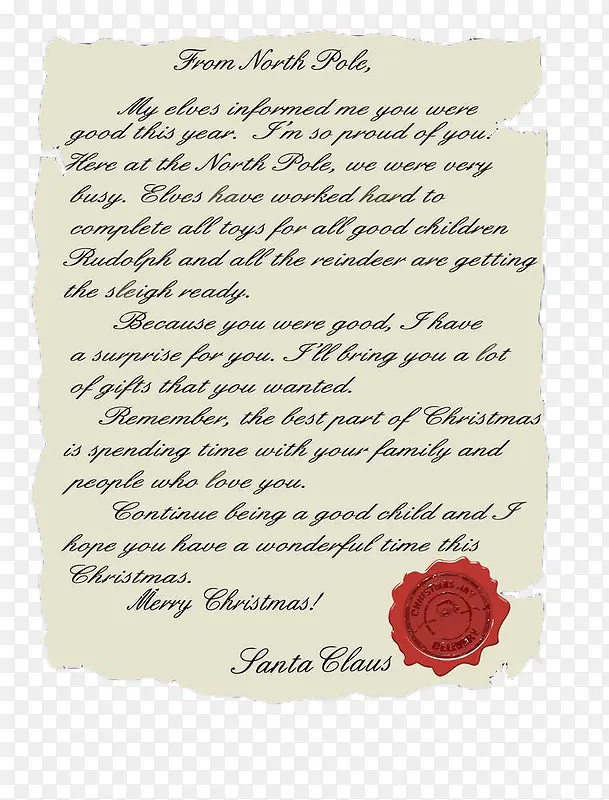 From North Pole,
My elves informed me you were
good this year. I'm so proud of you!
Here at the North Pole, we were very
busy. Elves have worked hard to
complete all toys for all good children
Rudolph and all the reindeer are getting
the sleigh ready.
Because you were good, I have
a surprise for you. I'll bring you a lot
of gifts that you wanted.
Remember, the best part of Christmas
is spending time with your family and
people who love you.
Continue being a good child and I
hope you have a wonderful time this
Christmas.
Merry Christmas!
Santa Claus
CHRISTMAS DAY
DELIVERY